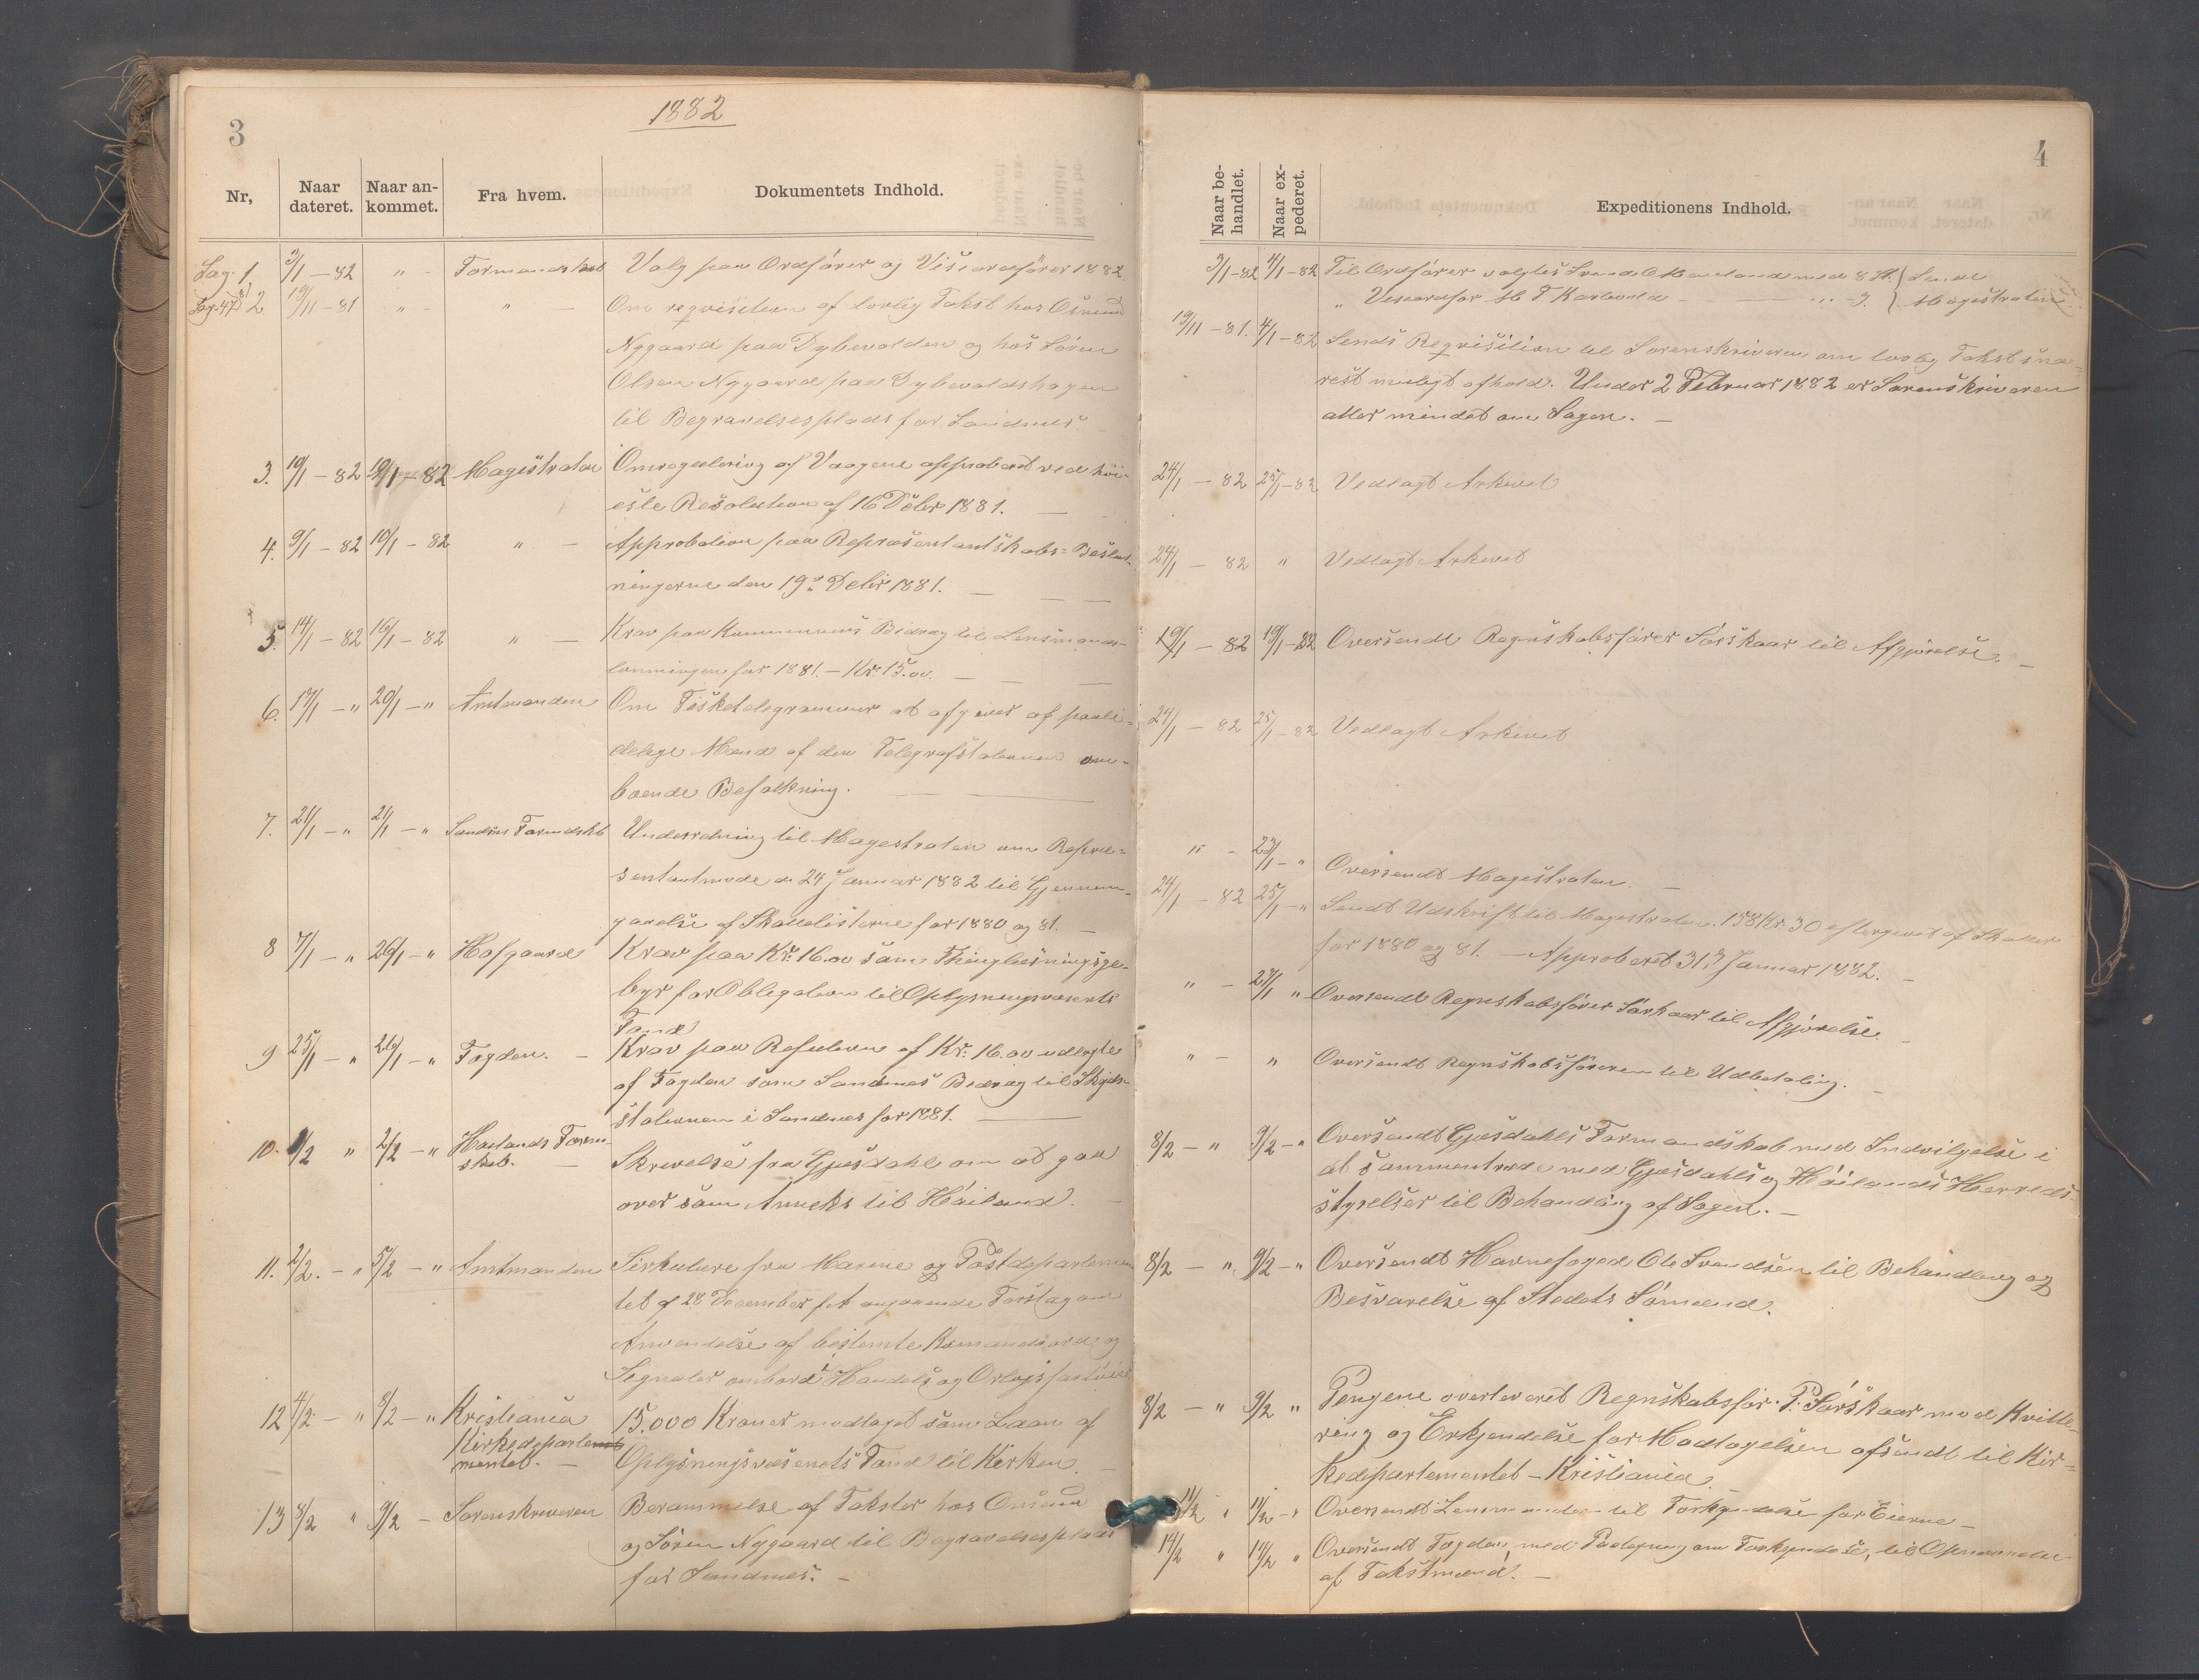 1882
3
Nr,
Naar dateret.
Naar ankommet.
Fra hvem.
Dokumentets Indhold.
Sag. 1. 3/1 – 82 " – Formandskab Valg paa Ordfører og Viseordfører 1882
2 19/11 – 81 " – " – Om reqvisition af lovlig Takst hos Osmund
Nygaard paa Dybevolden og hos Sören
Olsen Nygaard paa Dybevoldshagen
til Begravelsesplads for Sandnes. –
3. 10/1 – 82 – 82 Magistraten Omregulering af Vaagene approberet ved höi-
este Resolution af 16 Decbr 1881. –
4. 9/1 – 82 10/1 – 82 " – Approbation paa Repræsentantskabs=Beslut-
ningerne den 19de Decbr 1881. –
5. 14/1 – 82 16/1 – 82 " – Krav paa Kommunens Bidrag til Lensmands-
lønningen for 1881. – Kr. 15.00. –
6. 17/1 – " 20/1 – " Amtmanden Om Fisketelegrammer at afgives af paali=
delige Mænd af den Telegrafstationen om-
boende Befolkning. –
7. 21/1 – " 21/1 – " Sandnes Formdskb Underretning til Magistraten om Repræ=
sentantmøde d. 24 Januar 1882 til Gjennem-
gaaelse af Skattelisterne for 1880 og 81. –
8 7/1 – " 26/1 – " Hofgaard Krav paa Kr. 16.00 som Thinglæsningsge-
byr for Obligation til Oplysningsvæsenets
Fond
9 25/1 – " 26/1 – " Fogden. – Krav paa Refusion af Kr. 16.00 udlagte
af Fogden som Sandnes Bidrag til Skyds-
stationen i Sandnes for 1881. –
10. 1/2 " 2/2 – " Høilands Form-
skab. – Skrivelse fra Gjesdahl om at gaa
over som Anneks til Høiland. –
11. 2/2. – " 5/2 – " Amtmanden Sirkulære fra Marine og Postdepartemen
tet af 28 December f. A. angaaende Forslag om
Anvendelse af bestemte Komandoord og
Signaler ombord i Handels og Orlogsfartøier
12 4/2 – " 8/2 – " Kristiania 15.000 Kroner modtaget som Laan af
Kirkedeparte
mentet. – Oplysningsvæsenets Fond til Kirken. –
13 8/2 " 9/2 – Sorenskriveren Berammelse af Takster hos Osmund
og Sören Nygaard til Begravelsesplads
for Sandnes. –
4
Naar behandlet.
Naar expederet.
Expeditionens Indhold.
3/1 – 82 4/1 – 82 Til Ordfører valgtes Svend med 8 St. } Sendt
" Viseordfør – 9. } Magistraten
19/11 – 81. 4/1 – 82 Sendt Reqvisition til Sorenskriveren om lovlig Takst sna=
rest muligt afhold. Under 2 Februar 1882 er Sorenskriveren
atter mindet om Sagen. –
24/1 – 82 25/1 – 82 Vedlagt Arkivet
24/1 – 82 " Vedlagt Arkivet
19/1 – 82 19/1 – 82 Oversendt Regnskabsfører Sörskaar til Afgjørelse. –
24/1 – 82 25/1 – 82 Vedlagt Arkivet
" – 23/1 – " Oversendt Magistraten. –
24/1 – 82 25/1 – " Sendt Udskrift til Magistraten. 158 Kr. 30 eftergivet af Skatter
for 1880 og 81. – Approberet 31te Januar 1882. –
" – 27/1 " Oversendt Regnskabsfører Sörskaar til Afgjørelse. –
" – " Oversendt Regnskabsføreren til Udbetaling. –
8/2 – " 9/2 – " Oversendt Gjesdahls Formandskab med Indvilgelse i
at sammentræde med Gjesdahls og Höilands Herreds-
styrelser til Behandling af Sagen. –
8/2 – " 9/2 – " Oversendt Havnefoged Ole Svendsen til Behandling og
Besvarelse af Stedets Sømænd.
8/2 – " 9/2 " Pengene overleveret Regnskabsför. P. Sörskaar mod Kvitte-
ring og Erkjendelse for Modtagelsen afsendt til Kir=
kedepartementet – Kristiania.
11/2 " 11/2 – " Oversendt Lensmanden til Forkyndelse for Eierne –
14/2 " 14/2 " Oversendt Fogden, med Paategning om Forkyndelse, til Opnævnelse
af Takstmænd. –